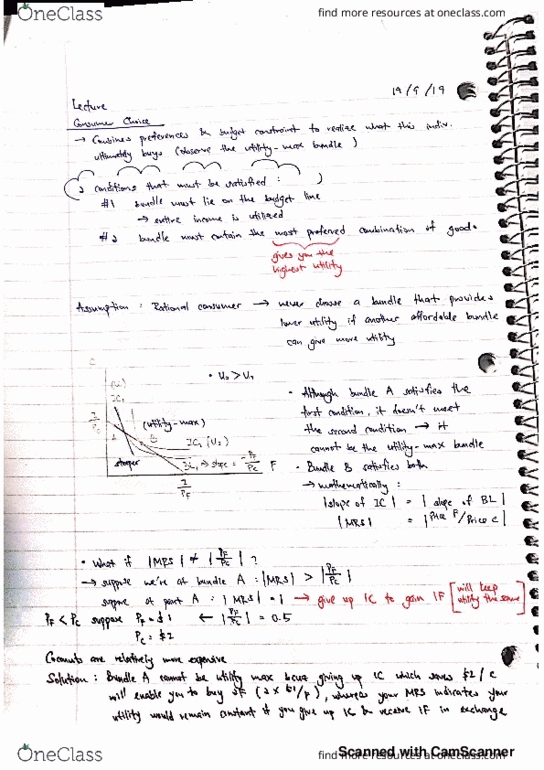 OneClass
find more resources at oneclass.com
19/9/19
Lecture
Consumer Choice
→ Combines preferences & budget constraint to realize what this indiv.
ultimately buys (observe the utility-max bundle)
2 conditions that must be satisfied :
#1 bundle must lie on the budget line
→ entire income is utilized
#2 bundle must contain the most preferred combination of goods
gives you the
highest utility
Assumption : Rational consumer → never choose a bundle that provides
lower utility if another affordable bundle
can give more utility
C
• U2 > U1
(utility-max)
IC2 (U2)
IC1 → slope = -PF/PC
F
I/PF
steeper
• Although bundle A satisfies the
first condition, it doesn't meet
the second condition → it
cannot be the utility-max bundle
• Bundle B satisfies both
→ mathematically :
|slope of IC| = |slope of BL|
|MRS| = |Price F/Price C|
• What if |MRS| ≠ |PF/PC| ?
→ suppose we're at bundle A : |MRS| > |PF/PC|
suppose at point A : |MRS| = 1 → give up 1C to gain 1F [will keep utility the same]
PF < PC suppose PF = $1 ← |PF/PC| = 0.5
PC = $2
Coconuts are relatively more expensive
Solution : Bundle A cannot be utility max bcuz giving up 1C which saves $2/c
will enable you to buy 2F (2 x $1/F), whereas your MRS indicates your
utility would remain constant if you give up 1C & receive 1F in exchange
OneClass
Scanned with CamScanner
find more resources at oneclass.com